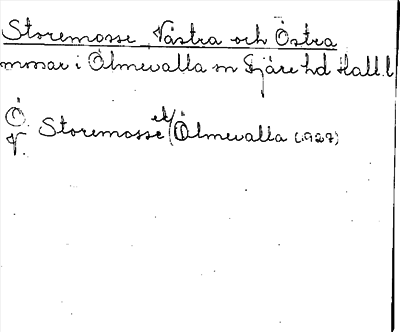 Storemosse, Västra och Östra
mossar i Ölmevalla sn Fjäre hd Hall. l
Ö.
V. Storemosse el/ (Ölmevalla (1927)